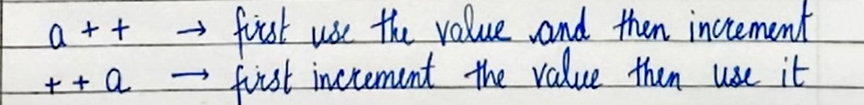 a++ → first use the value and then increment
++a → first increment the value then use it